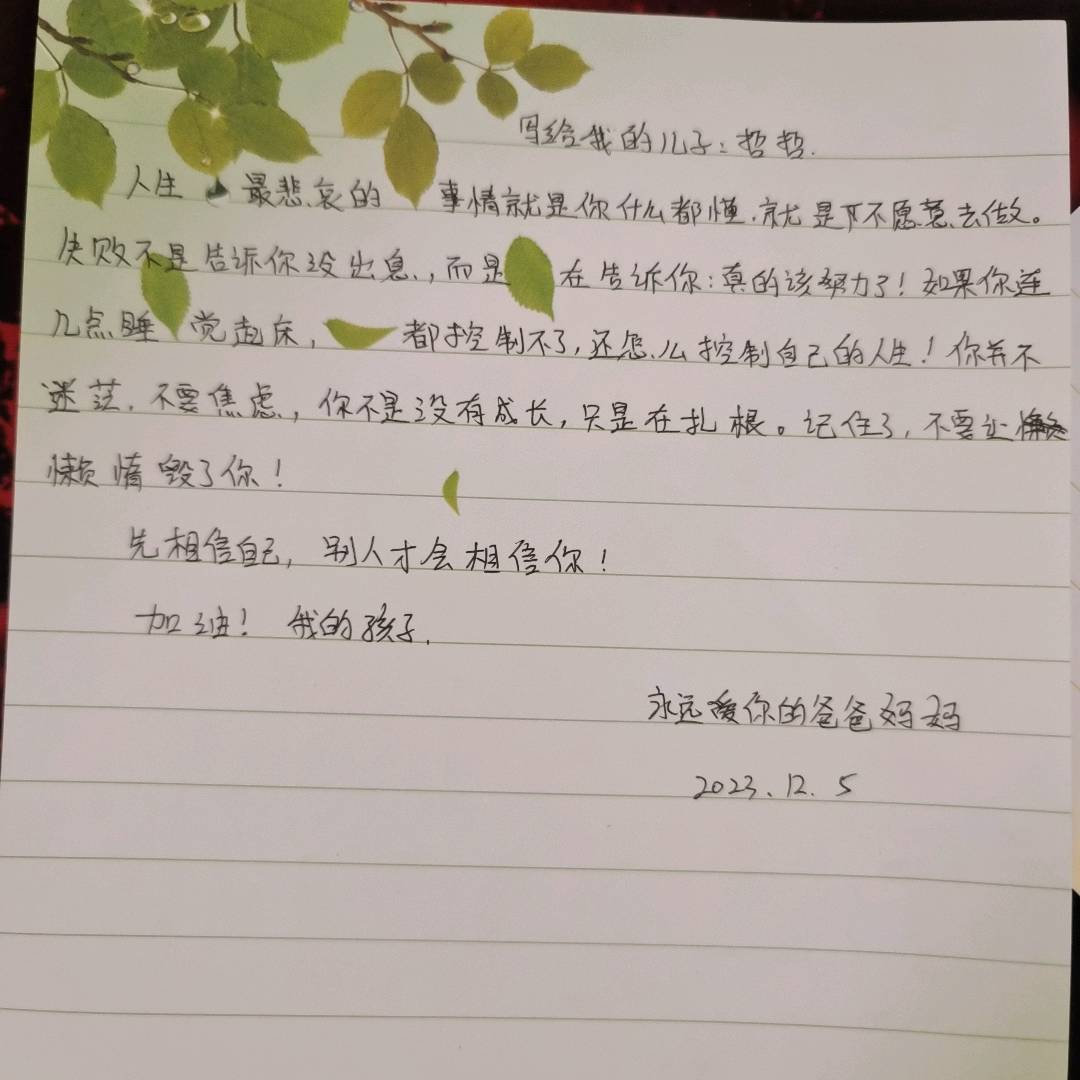 写给我的儿子：哲哲.
人生最悲哀的事情就是你什么都懂，就是不愿意去做。
失败不是告诉你没出息，而是在告诉你：真的该努力了！如果你连
几点睡觉起床，都控制不了，还怎么控制自己的人生！你并不
迷茫，不要焦虑，你不是没有成长，只是在扎根。记住了，不要让
懒惰毁了你！
先相信自己，别人才会相信你！
加油！我的孩子.
永远爱你的爸爸妈妈
2023.12.5